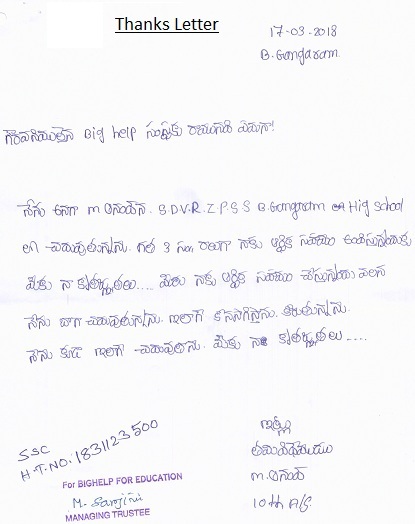 Thanks Letter
17-03-2018
B. Gangaram
గౌరవనీయులైన Big help సంస్థకు రాయునది ఏమనగా!
నేను అనగా M. వినయ్ S.D.V.R.Z.P.S.S B. Gangaram High School
లో చదువుతున్నాను. గత 3 సం.
మీకు నా కృతజ్ఞతలు.... మీరు నాకు ఆర్థిక సహాయం చేస్తున్నందు వలన
నేను బాగా చదువుతున్నాను. ఇలాగే
నేను కూడా ఇలాగే చదువుతాను. మీకు నా కృతజ్ఞతలు.....
SSC
H.T.NO: 1831123500
ఇట్లు
10th A/S
For BIGHELP FOR EDUCATION
MANAGING TRUSTEE